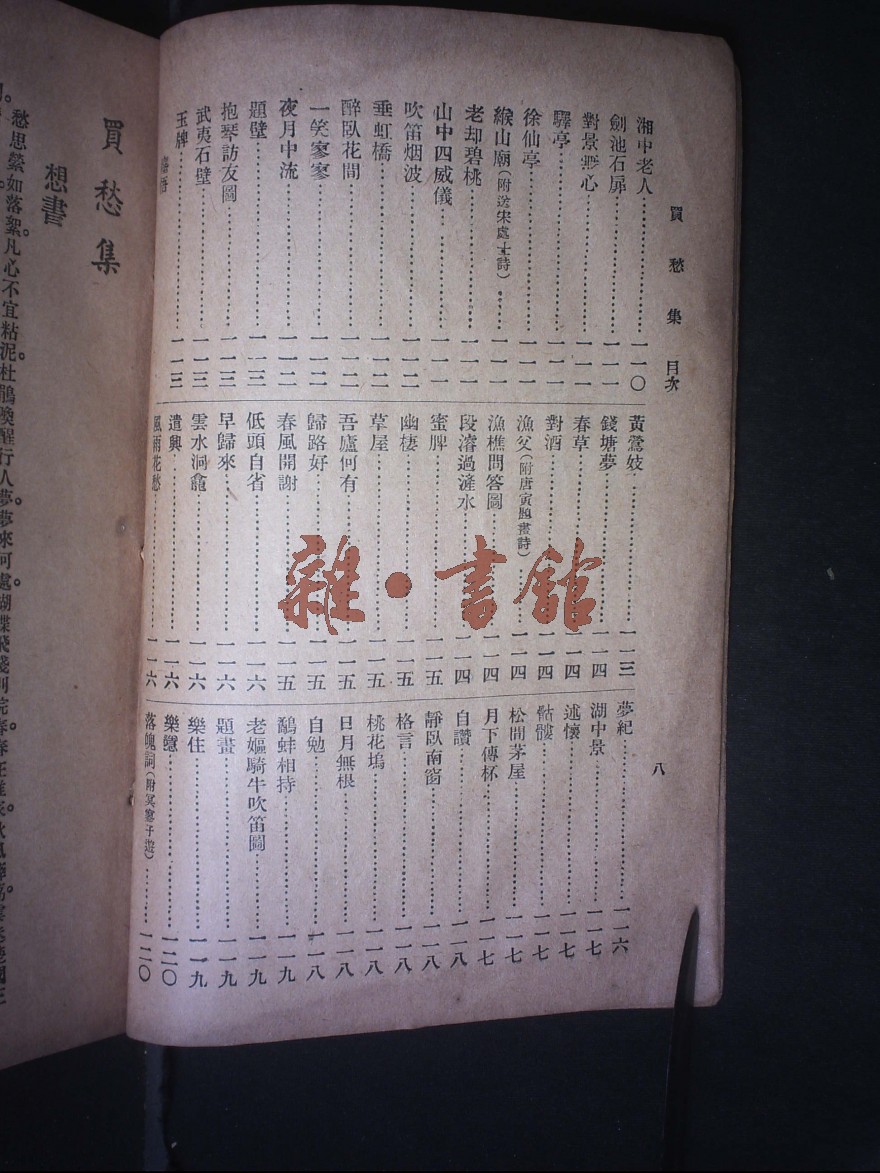 買愁集 目次
八
湘中老人……一一〇
劍池石扉……一一一
對景無心……一一一
驛亭……一一一
徐仙亭……一一一
緱山廟(附送宋處士詩)……一一一
老却碧桃……一一一
山中四威儀……一一一
吹笛烟波……一一二
垂虹橋……一一二
醉臥花間……一一二
一笑寥寥……一一二
夜月中流……一一二
題壁……一一三
抱琴訪友圖……一一三
武夷石壁……一一三
玉牌……一一三
語
黃鶯妓……一一三
錢塘夢……一一四
春草……一一四
對酒……一一四
漁父(附唐寅題畫詩)……一一四
漁樵問答圖……一一四
段濬過滻水……一一四
蜜脾……一一五
幽棲……一一五
草屋……一一五
吾廬何有……一一五
歸路好……一一五
春風開謝……一一五
低頭自省……一一六
早歸來……一一六
雲水洞龕……一一六
遣興……一一六
風雨花愁……一一六
夢紀……一一六
湖中景……一一七
述懷……一一七
骷髏……一一七
松間茅屋……一一七
月下傳杯……一一七
自讚……一一八
靜臥南窗……一一八
格言……一一八
桃花塢……一一八
日月無根……一一八
自勉……一一八
鷸蚌相持……一一九
老嫗騎牛吹笛圖……一一九
題畫……一一九
樂住……一一九
樂……一二〇
落魄詞(附冥寥子遊)……一二〇
雜·書館
買愁集
想書
愁思縈如落絮。凡心不宜粘泥。杜鵑喚醒行人夢。夢來何處。蝴蝶飛